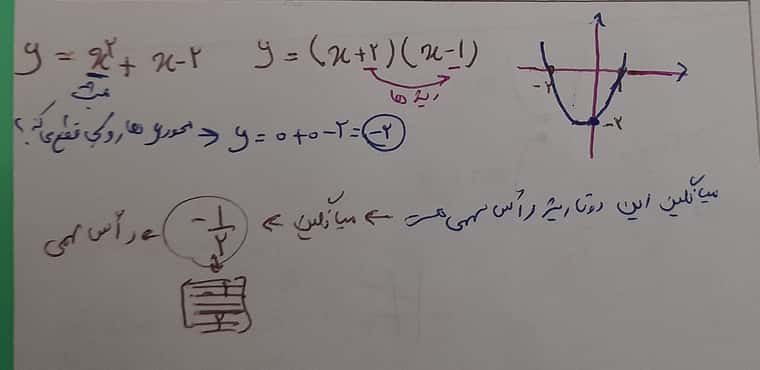 y = x² + x - ۲    y = (x + ۲)(x - ۱)
مثبت    ریشه ها
-۲    ۱
-۲
محور y ها رو کجا قطع می‌کنه؟ ⇒ y = ۰ + ۰ - ۲ = -۲
میانگین این دو تا ریشه رأس سهمی هست ← میانگین ← -۱/۲ ← رأس سهمی